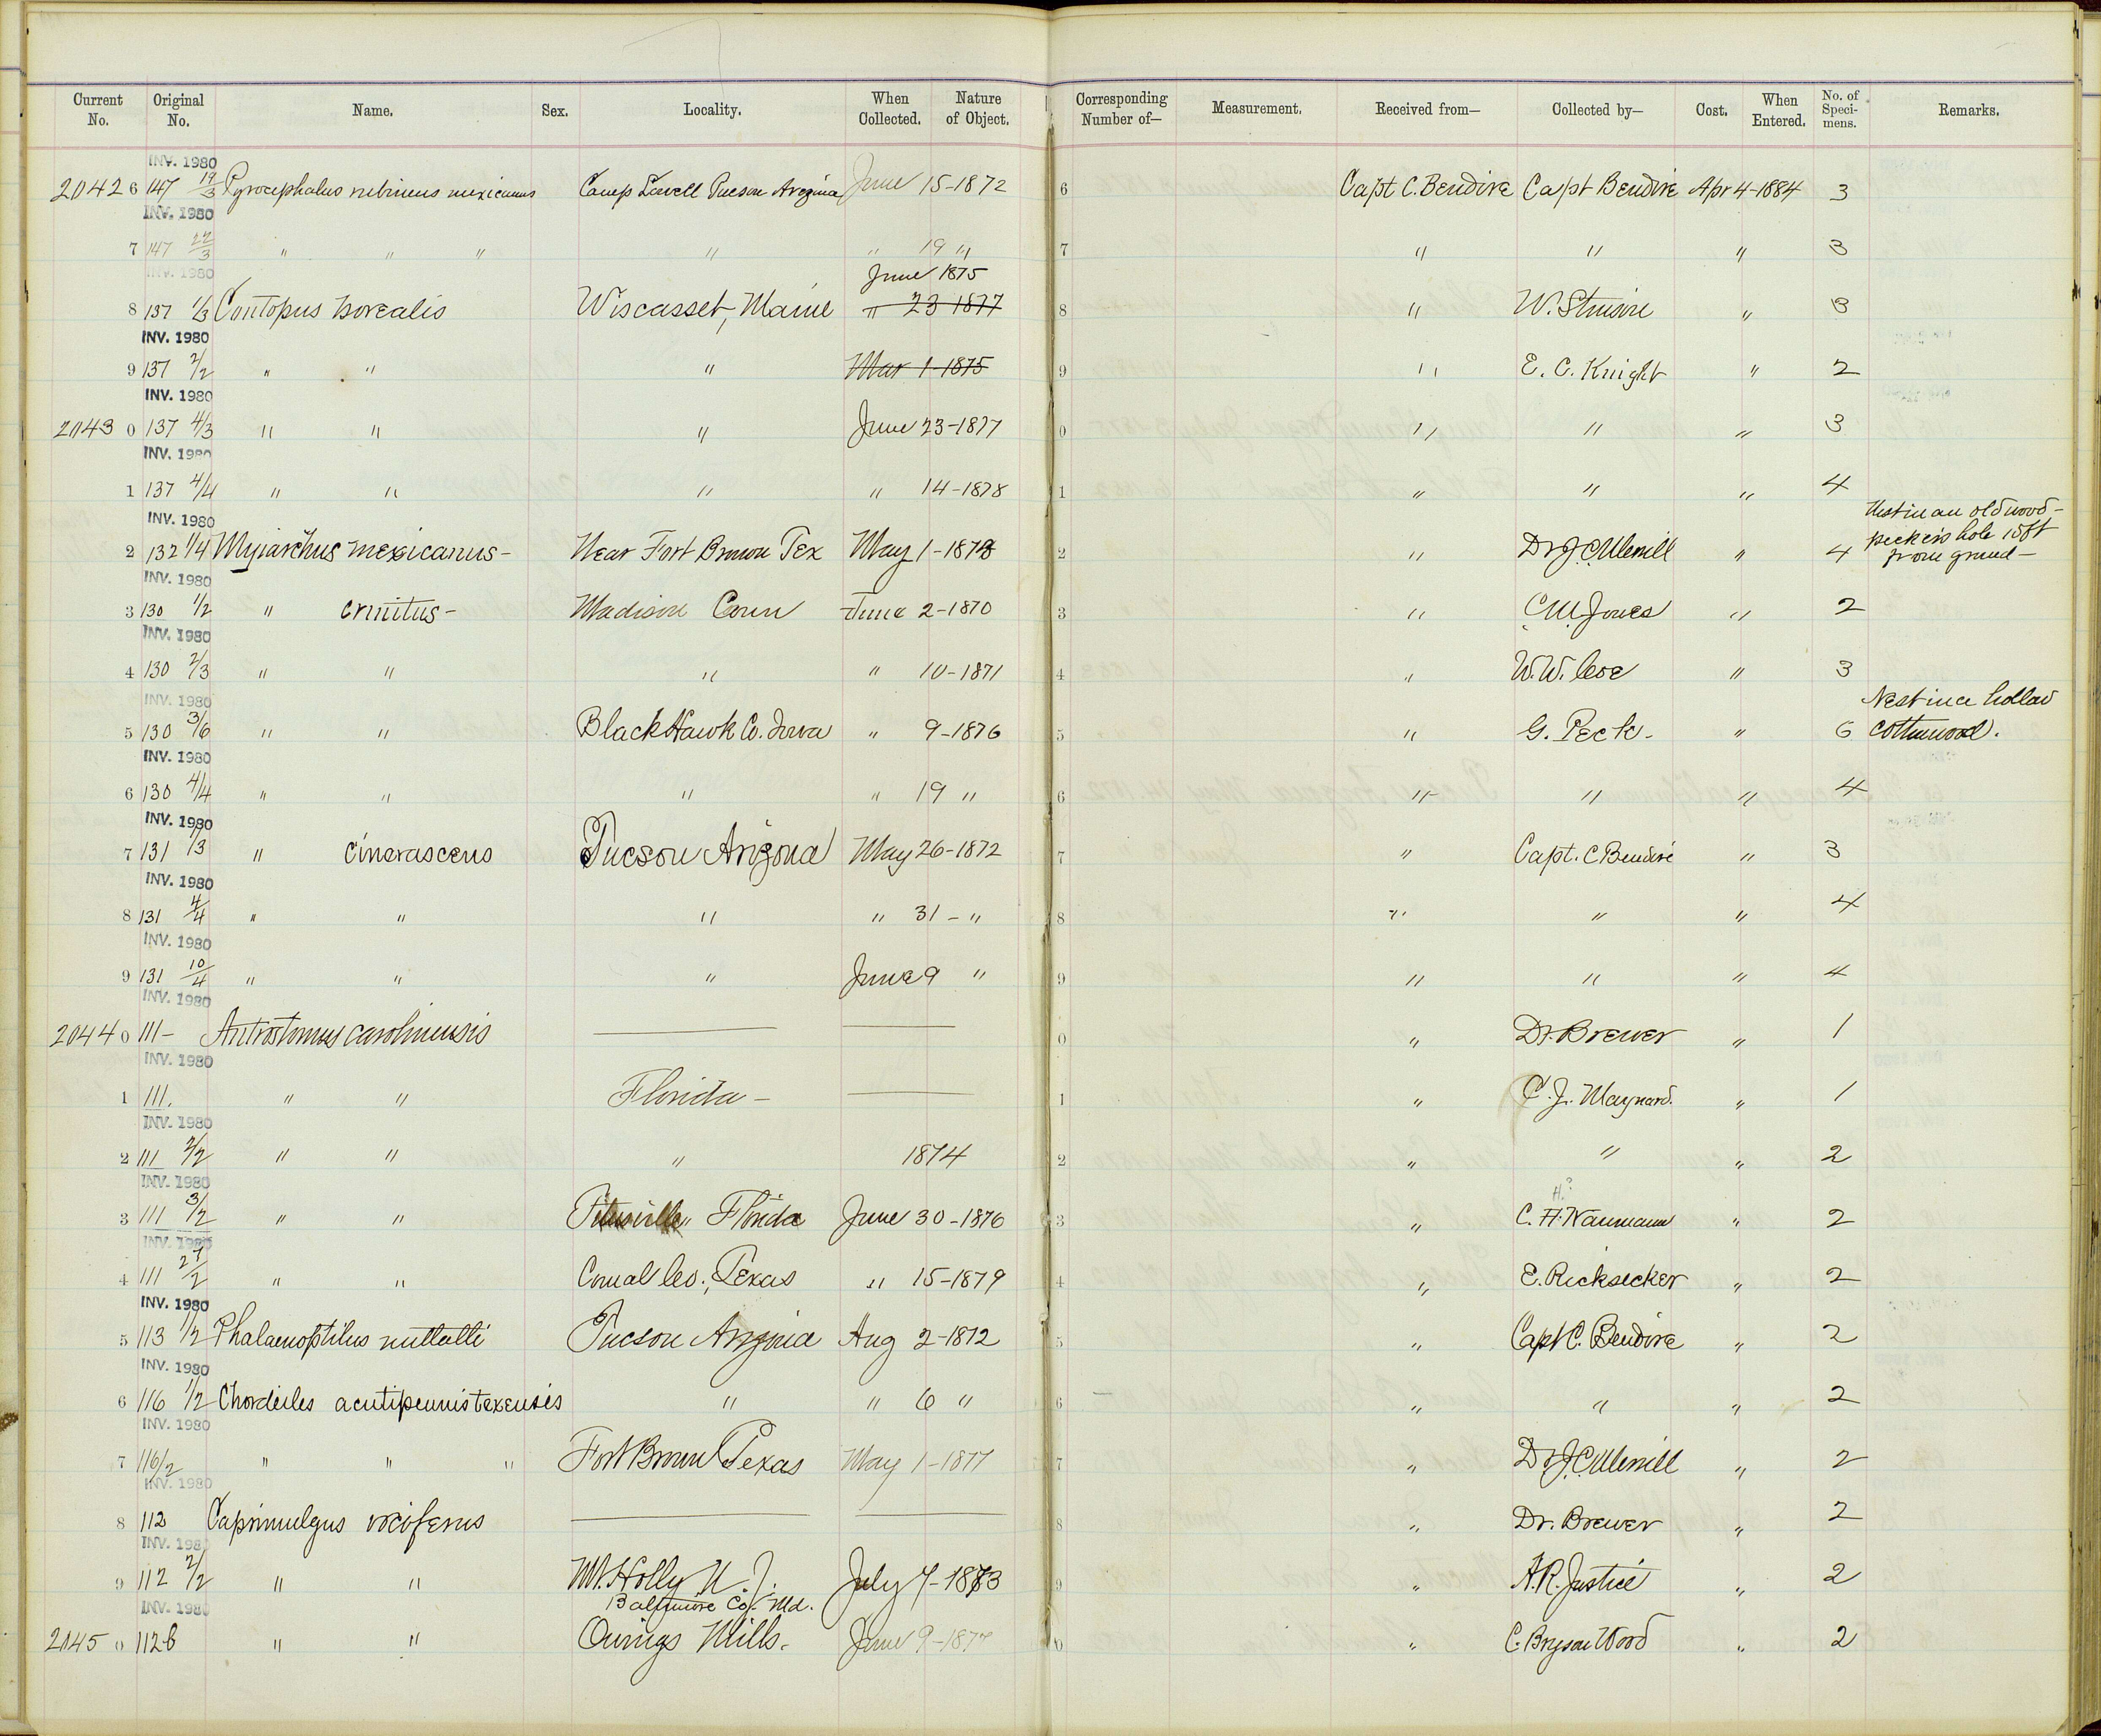 Current No. Original No. Name. Sex. Locality. When Collected. Nature of Object. Corresponding Number of— Measurement. Received from— Collected by— Cost. When Entered. No. of Specimens. Remarks.
INV. 1980
2042 6 147 19/3 Pyrocephalus rubineus mexicanus Camp Lowell Tucson Arizona June 15-1872 6 Capt C. Bendire Capt Bendire Apr 4-1884 3
INV. 1980
7 147 22/3 " " " " " 19 " 7 " " " 3
INV. 1980
June 1875
8 137 1/3 Contopus borealis Wiscasset, Maine " 23 1877 8 " " 3
INV. 1980
9 137 2/2 " " " Mar 1-1875 9 " E. C. Knight " 2
INV. 1980
2043 0 137 4/3 " " " June 23-1877 0 " " " 3
INV. 1980
1 137 4/4 " " " " 14-1878 1 " " " 4
INV. 1980
Nest in an old wood-
pecker's hole 15 ft
2 132 1/4 Myiarchus mexicanus- Near Fort Brown Tex May 1-1878 2 " Dr J. C. Merrill " 4 from ground-
INV. 1980
3 130 1/2 " crinitus- Madison Conn June 2-1870 3 " C. M. Jones " 2
INV. 1980
4 130 2/3 " " " " 10-1871 4 " W. W. Coe " 3
INV. 1980
Nest in a hollow
5 130 3/6 " " Black Hawk Co. Iowa " 9-1876 5 " G. Peck- " 6 cottonwood.
INV. 1980
6 130 4/4 " " " " 19 " 6 " " " 4
INV. 1980
7 131 1/3 " cinerascens Tucson Arizona May 26-1872 7 " Capt. C Bendire " 3
INV. 1980
8 131 4/4 " " " " 31 - " 8 " " " 4
INV. 1980
9 131 10/4 " " " June 9 " 9 " " " 4
INV. 1980
2044 0 111- Antrostomus carolinensis 0 " Dr. Brewer " 1
INV. 1980
1 111. " " Florida- 1 " C. J. Maynard. " 1
INV. 1980
2 111 2/2 " " " 1874 2 " " " 2
INV. 1980
H.?
3 111 3/2 " " Titusville Florida June 30-1876 3 " C. H. Naumann " 2
INV. 1980
4 111 27/2 " " Comal Co., Texas " 15-1879 4 " E. Ricksecker " 2
INV. 1980
5 113 1/2 Phalaenoptilus nuttalli Tucson Arizona Aug 2-1872 5 " Capt C. Bendire " 2
INV. 1980
6 116 1/2 Chordeiles acutipennis texensis " " 6 " 6 " " " 2
INV. 1980
7 116/2 " " " Fort Brown Texas May 1-1877 7 " Dr J. C. Merrill " 2
INV. 1980
8 112 Caprimulgus vociferus 8 " Dr. Brewer " 2
INV. 198
9 112 2/2 " " Mt. Holly N. J. July 7-1873 9 " A. R. Justice " 2
INV. 198
Baltimore Co. Md.
2045 0 112 b " " Owings Mills. June 9-1877 0 " C. Bryson Wood " 2